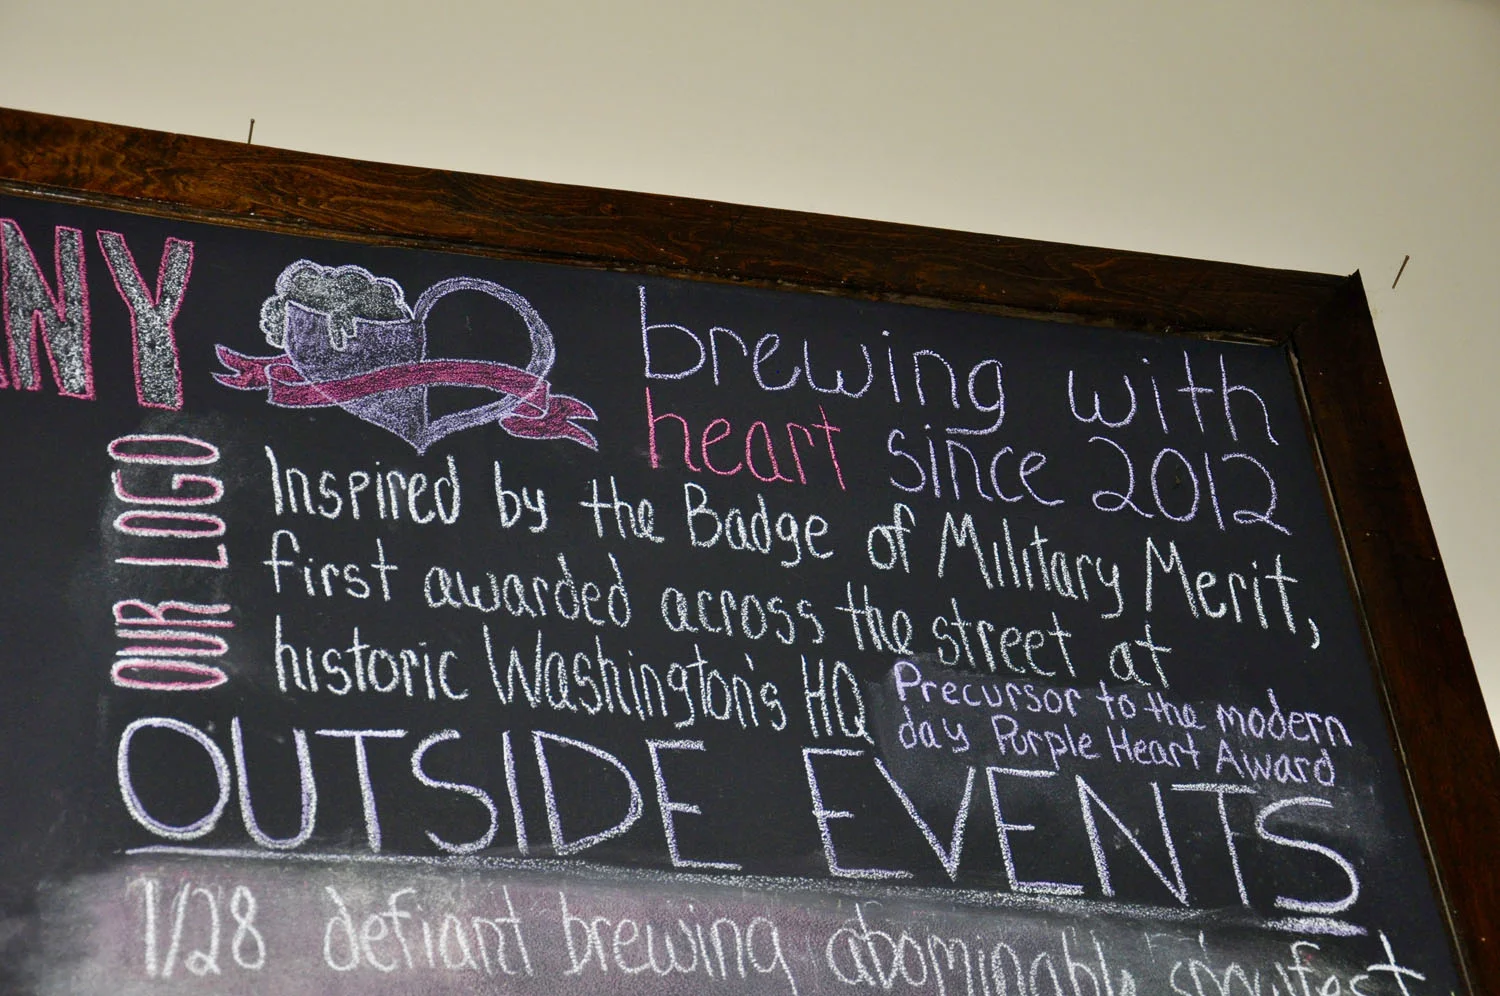 NY
brewing with
heart since 2012
OUR LOGO
Inspired by the Badge of Military Merit,
first awarded across the street at
historic Washington's HQ
Precursor to the modern
day Purple Heart Award
OUTSIDE EVENTS
1/28 defiant brewing abominably